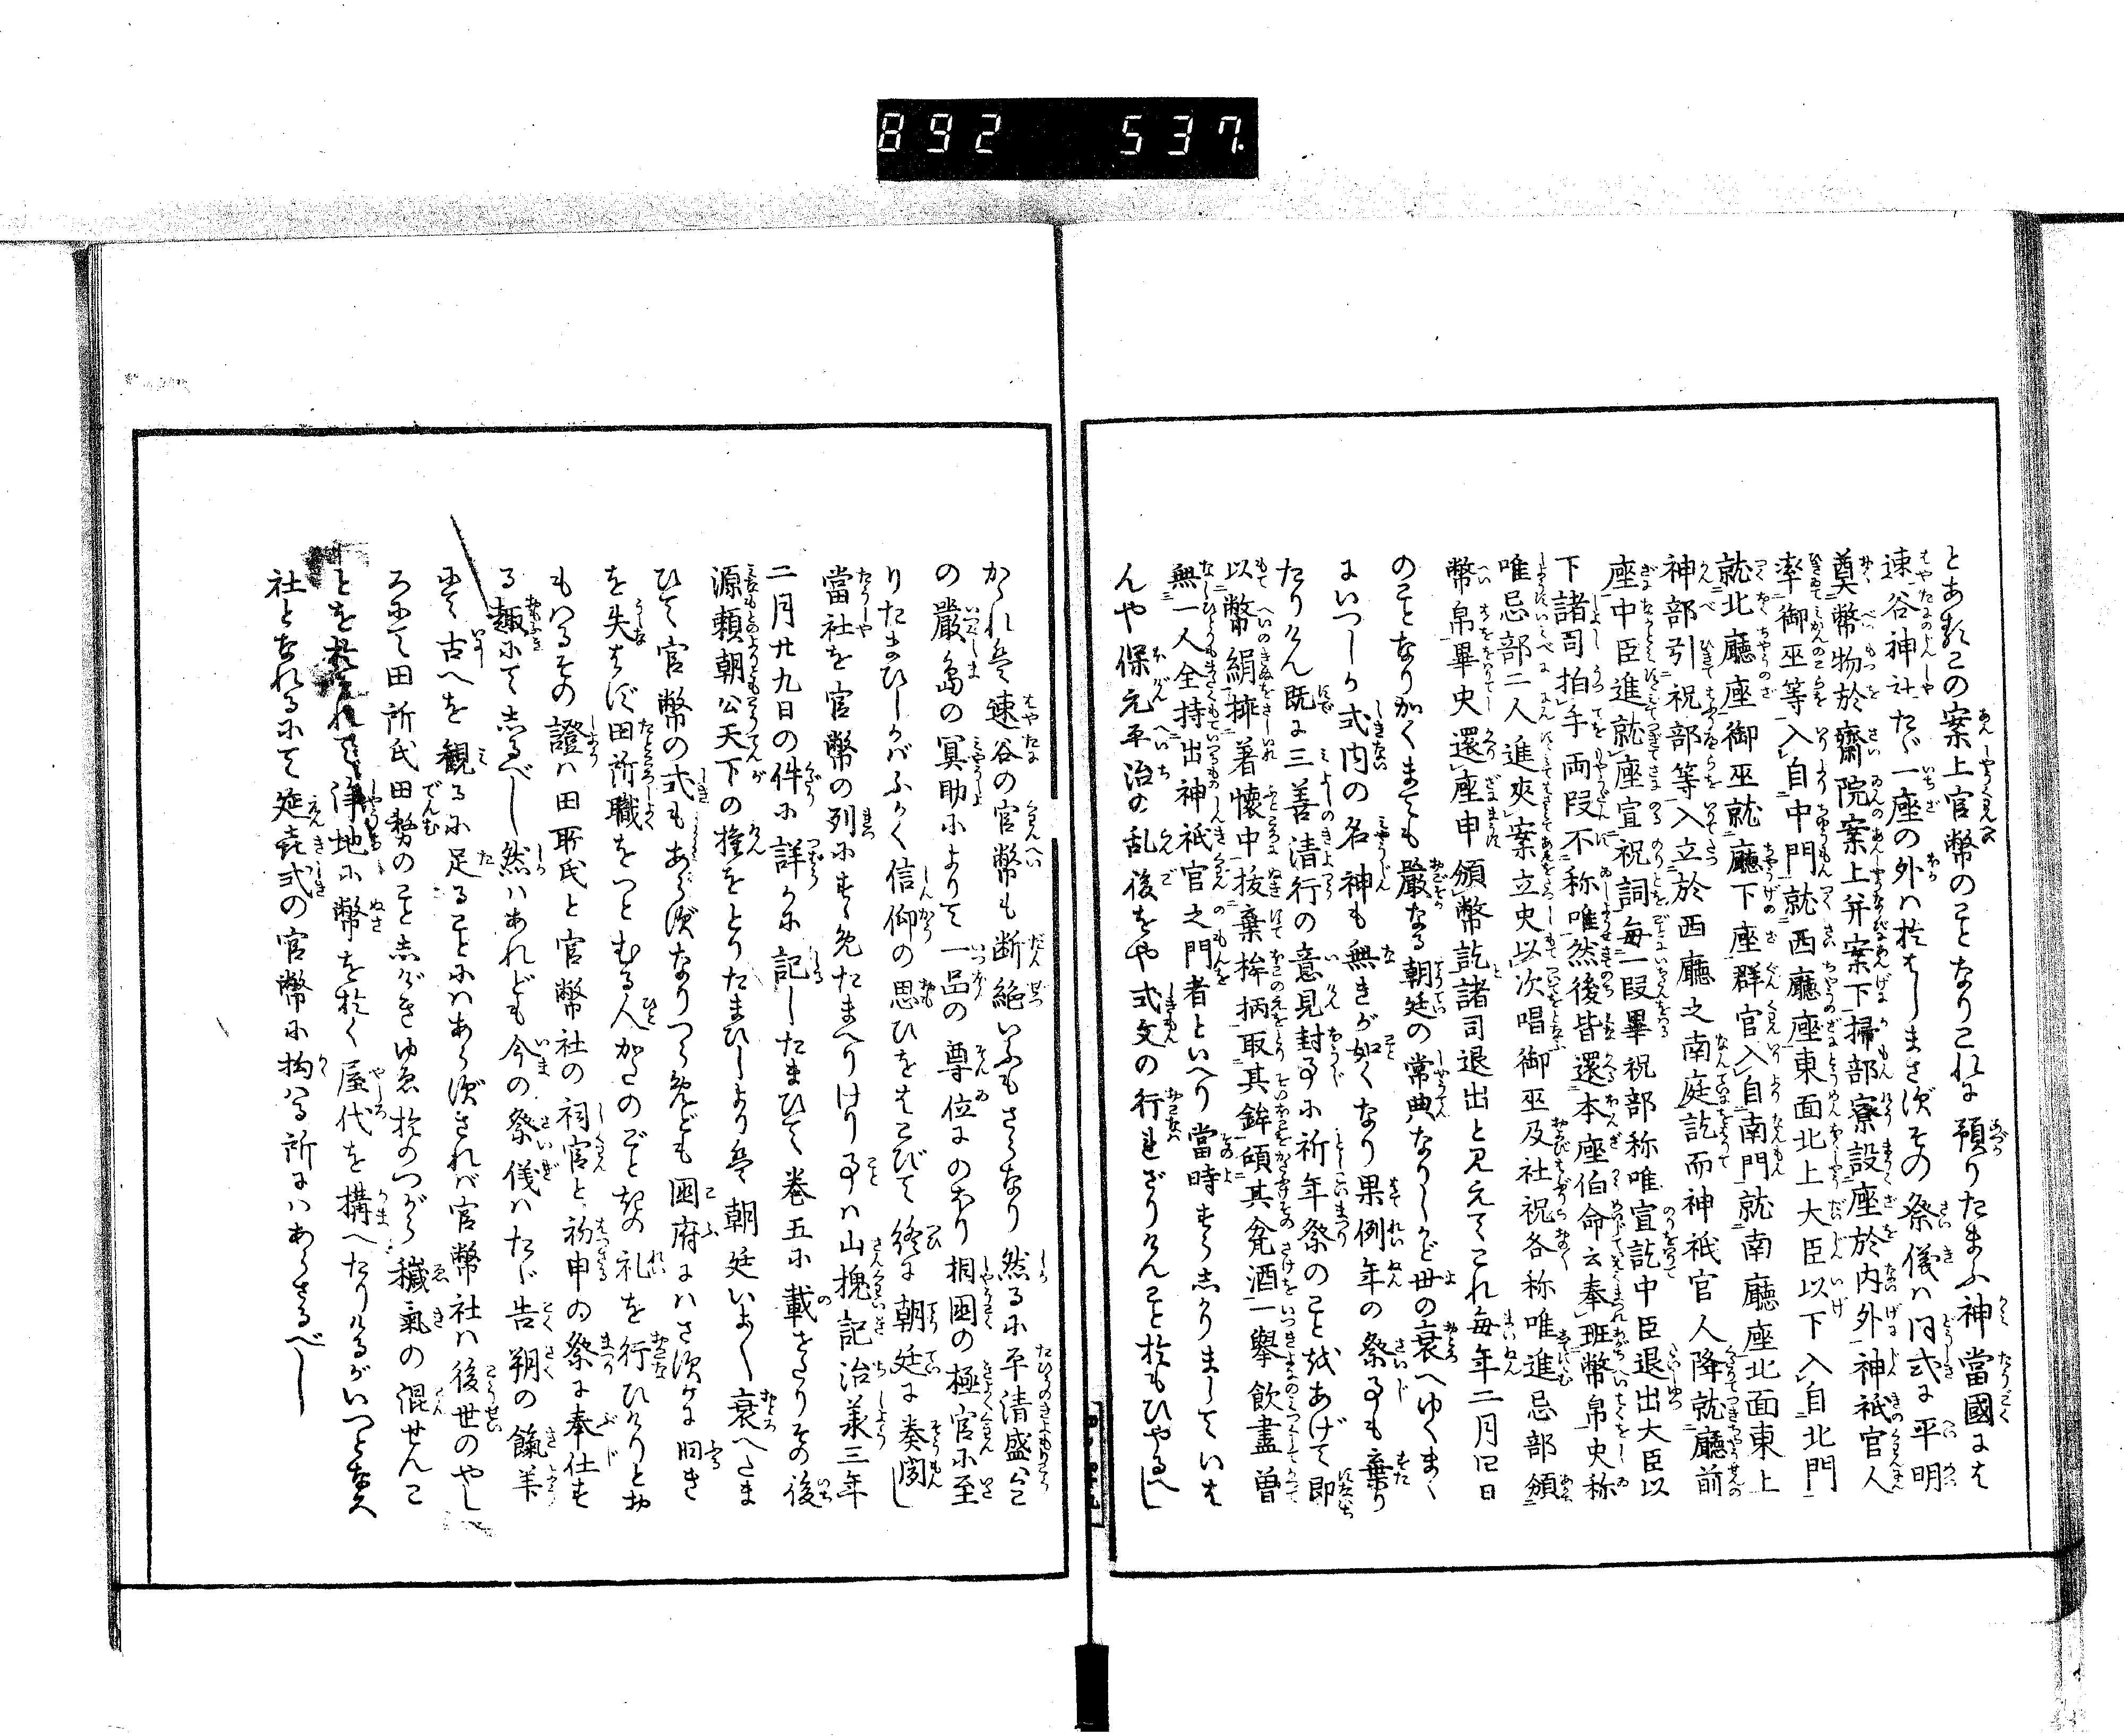 892 537
とある此の案上官幣のことなりこれに預りたまふ神當國には
速谷神社たゞ一座の外ハおはしまさずその祭儀ハ同式に平明
奠幣物於齋院案上并案下掃部寮設座於内外神祇官人
率御巫等入自中門就西廳座東面北上大臣以下入自北門
就北廳座御巫就廳下座群官入自南門就南廳座北面東上
神部引祝部等入立於西廳之南庭訖而神祇官人降就廳前
座中臣進就座宣祝詞毎一段畢祝部称唯宣訖中臣退出大臣以
下諸司拍手両段不称唯然後皆還本座伯命云奉班幣帛史称
唯忌部二人進夾案立史以次唱御巫及社祝各称唯進忌部頒
幣帛畢史還座申頒幣訖諸司退出と見えてこれ毎年二月四日
のことなりかくまでも嚴なる朝廷の常典なりしかど世の衰へゆくまゝ
にいつしか式内の名神も無きが如くなり果例年の祭事も棄り
たりけん既に三善清行の意見封事に祈年祭のことをあげて即
以幣絹挿著懐中抜棄桙柄取其鉾傾其瓮酒一擧飲盡曽
無一人全持出神祇官之門者といへり當時すらしかりましていは
んや保元平治の乱後をや式文の行れざりけんことおもひやるべし
かゝれば速谷の官幣も断絶いふもさらなり然るに平清盛公こ
の嚴島の冥助によりて一品の尊位にのぼり相國の極官に至
りたまひしかバふかく信仰の思ひをはこびて終に朝廷に奏聞し
當社を官幣の列にすゝめたまへりける事ハ山槐記治承三年
二月廿九日の件に詳かに記したまひて巻五に載せたりその後
源頼朝公天下の権をとりたまひしより後朝廷いよ〳〵衰へたま
ひて官幣の式もあらずなりつらめども國府にハさすがに旧き
を失はず田所職をつとむる人かたのごと其の礼を行ひけりとお
もハるその證ハ田所氏と官幣社の祠官と初申の祭に奉仕す
る趣にてしるべし然ハあれども今の祭儀ハたゞ告朔の餼羊
にて古へを観るに足ることにハあらずされバ官幣社ハ後世のやし
ろにて田所氏田務のことしげきゆゑおのつから穢氣の混せんこ
とをおそれて浄地に幣を於く屋代を構へたりけるがいつとなく
社となれるにて延喜式の官幣に拘ハる所にハあらさるべし